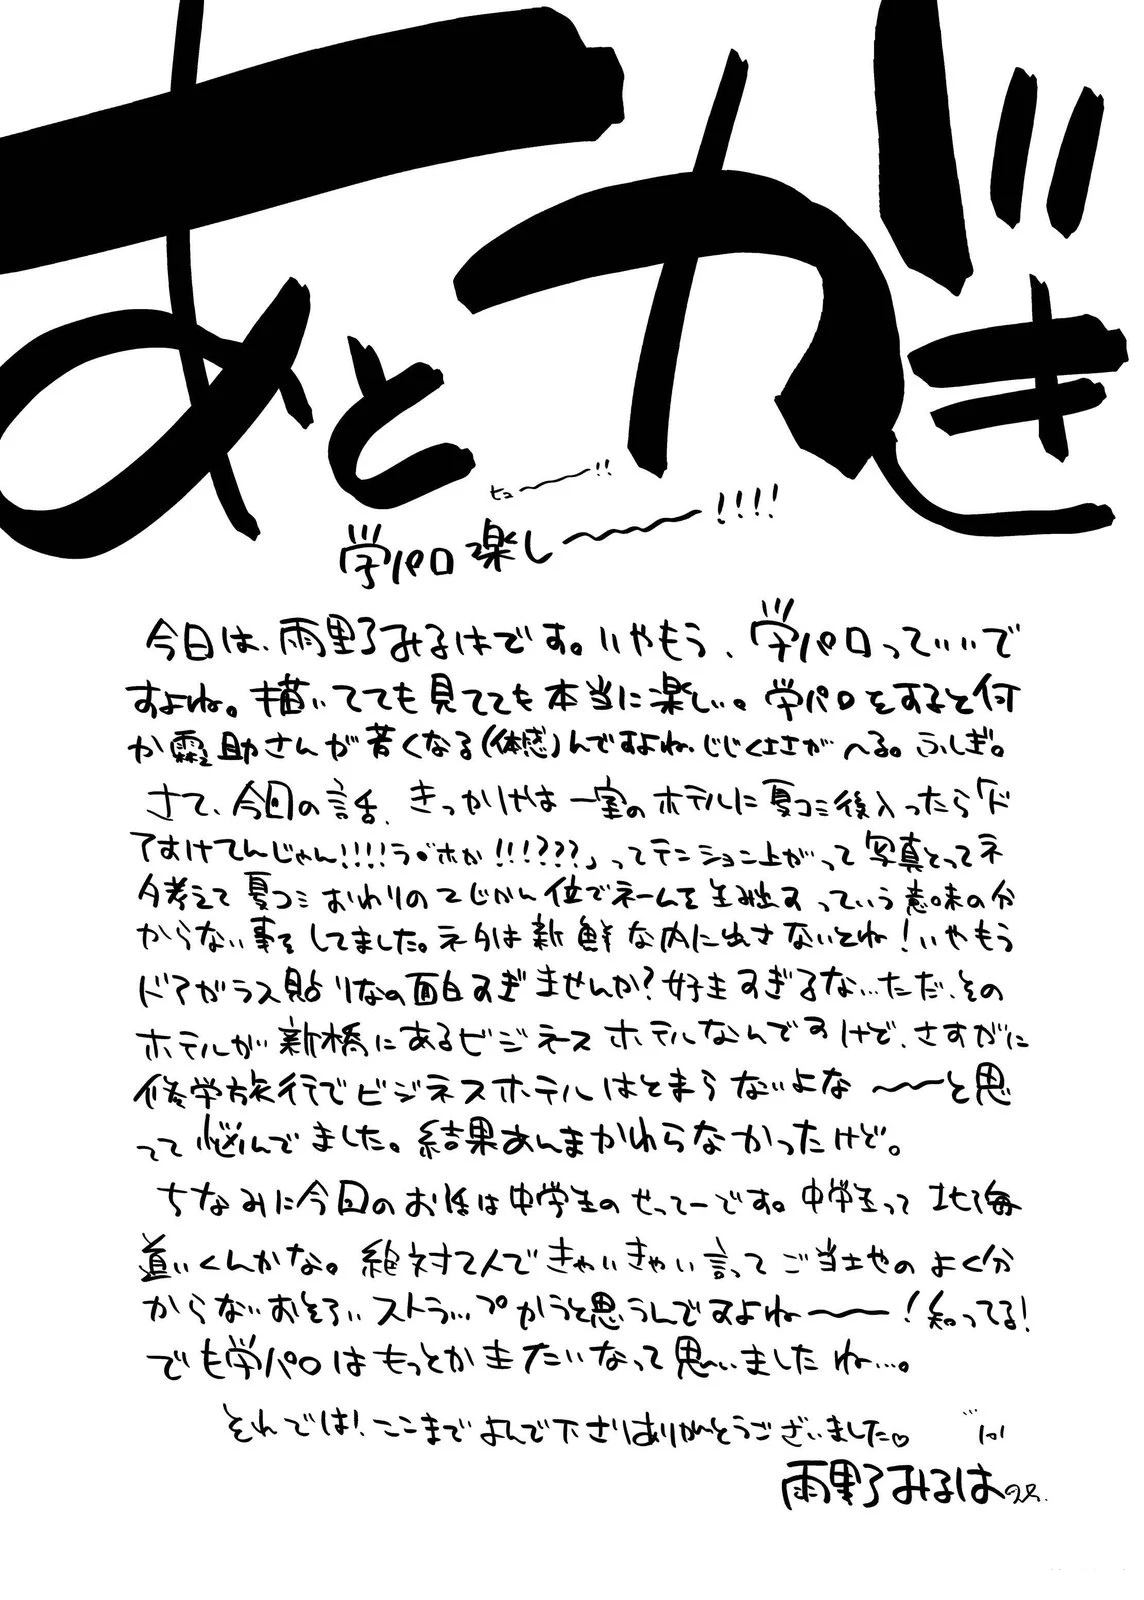 あとがき
ヒュ〜〜!!
学パロ楽し〜〜〜!!!!
今日は、雨野みるはです。いやもう、学パロっていいで
すよね。描いてても見てても本当に楽しい。学パロをすると何
か霖之助さんが若くなる(体感)んですよね。じじくささがへる。ふしぎ。
さて、今回の話、きっかけは一室のホテルに夏コミ後入ったら「ド
アすけてんじゃん!!!!ラブホか!!!???」ってテンション上がって写真とってネ
タ考えて夏コミおわりの2じかん位でネームを生み出すっていう意味の分
からない事をしてました。ネタは新鮮な内に出さないとね!いやもう
ドアガラス貼りなの面白すぎませんか?好きすぎるな…ただ、その
ホテルが新橋にあるビジネスホテルなんですけど、さすがに
修学旅行でビジネスホテルはとまらないよな〜〜と思
って悩んでました。結果あんまかわらなかったけど。
ちなみに今回のお話は中学生のせってーです。中学生って北海
道いくんかな。絶対2人できゃいきゃい言ってご当土やのよく分
からないおそろいストラップかうと思うんですよね〜〜!知ってる!
でも学パロはもっとかきたいなって思いましたね…。
それでは!ここまでよんで下さりありがとうございました♡
雨野みるは